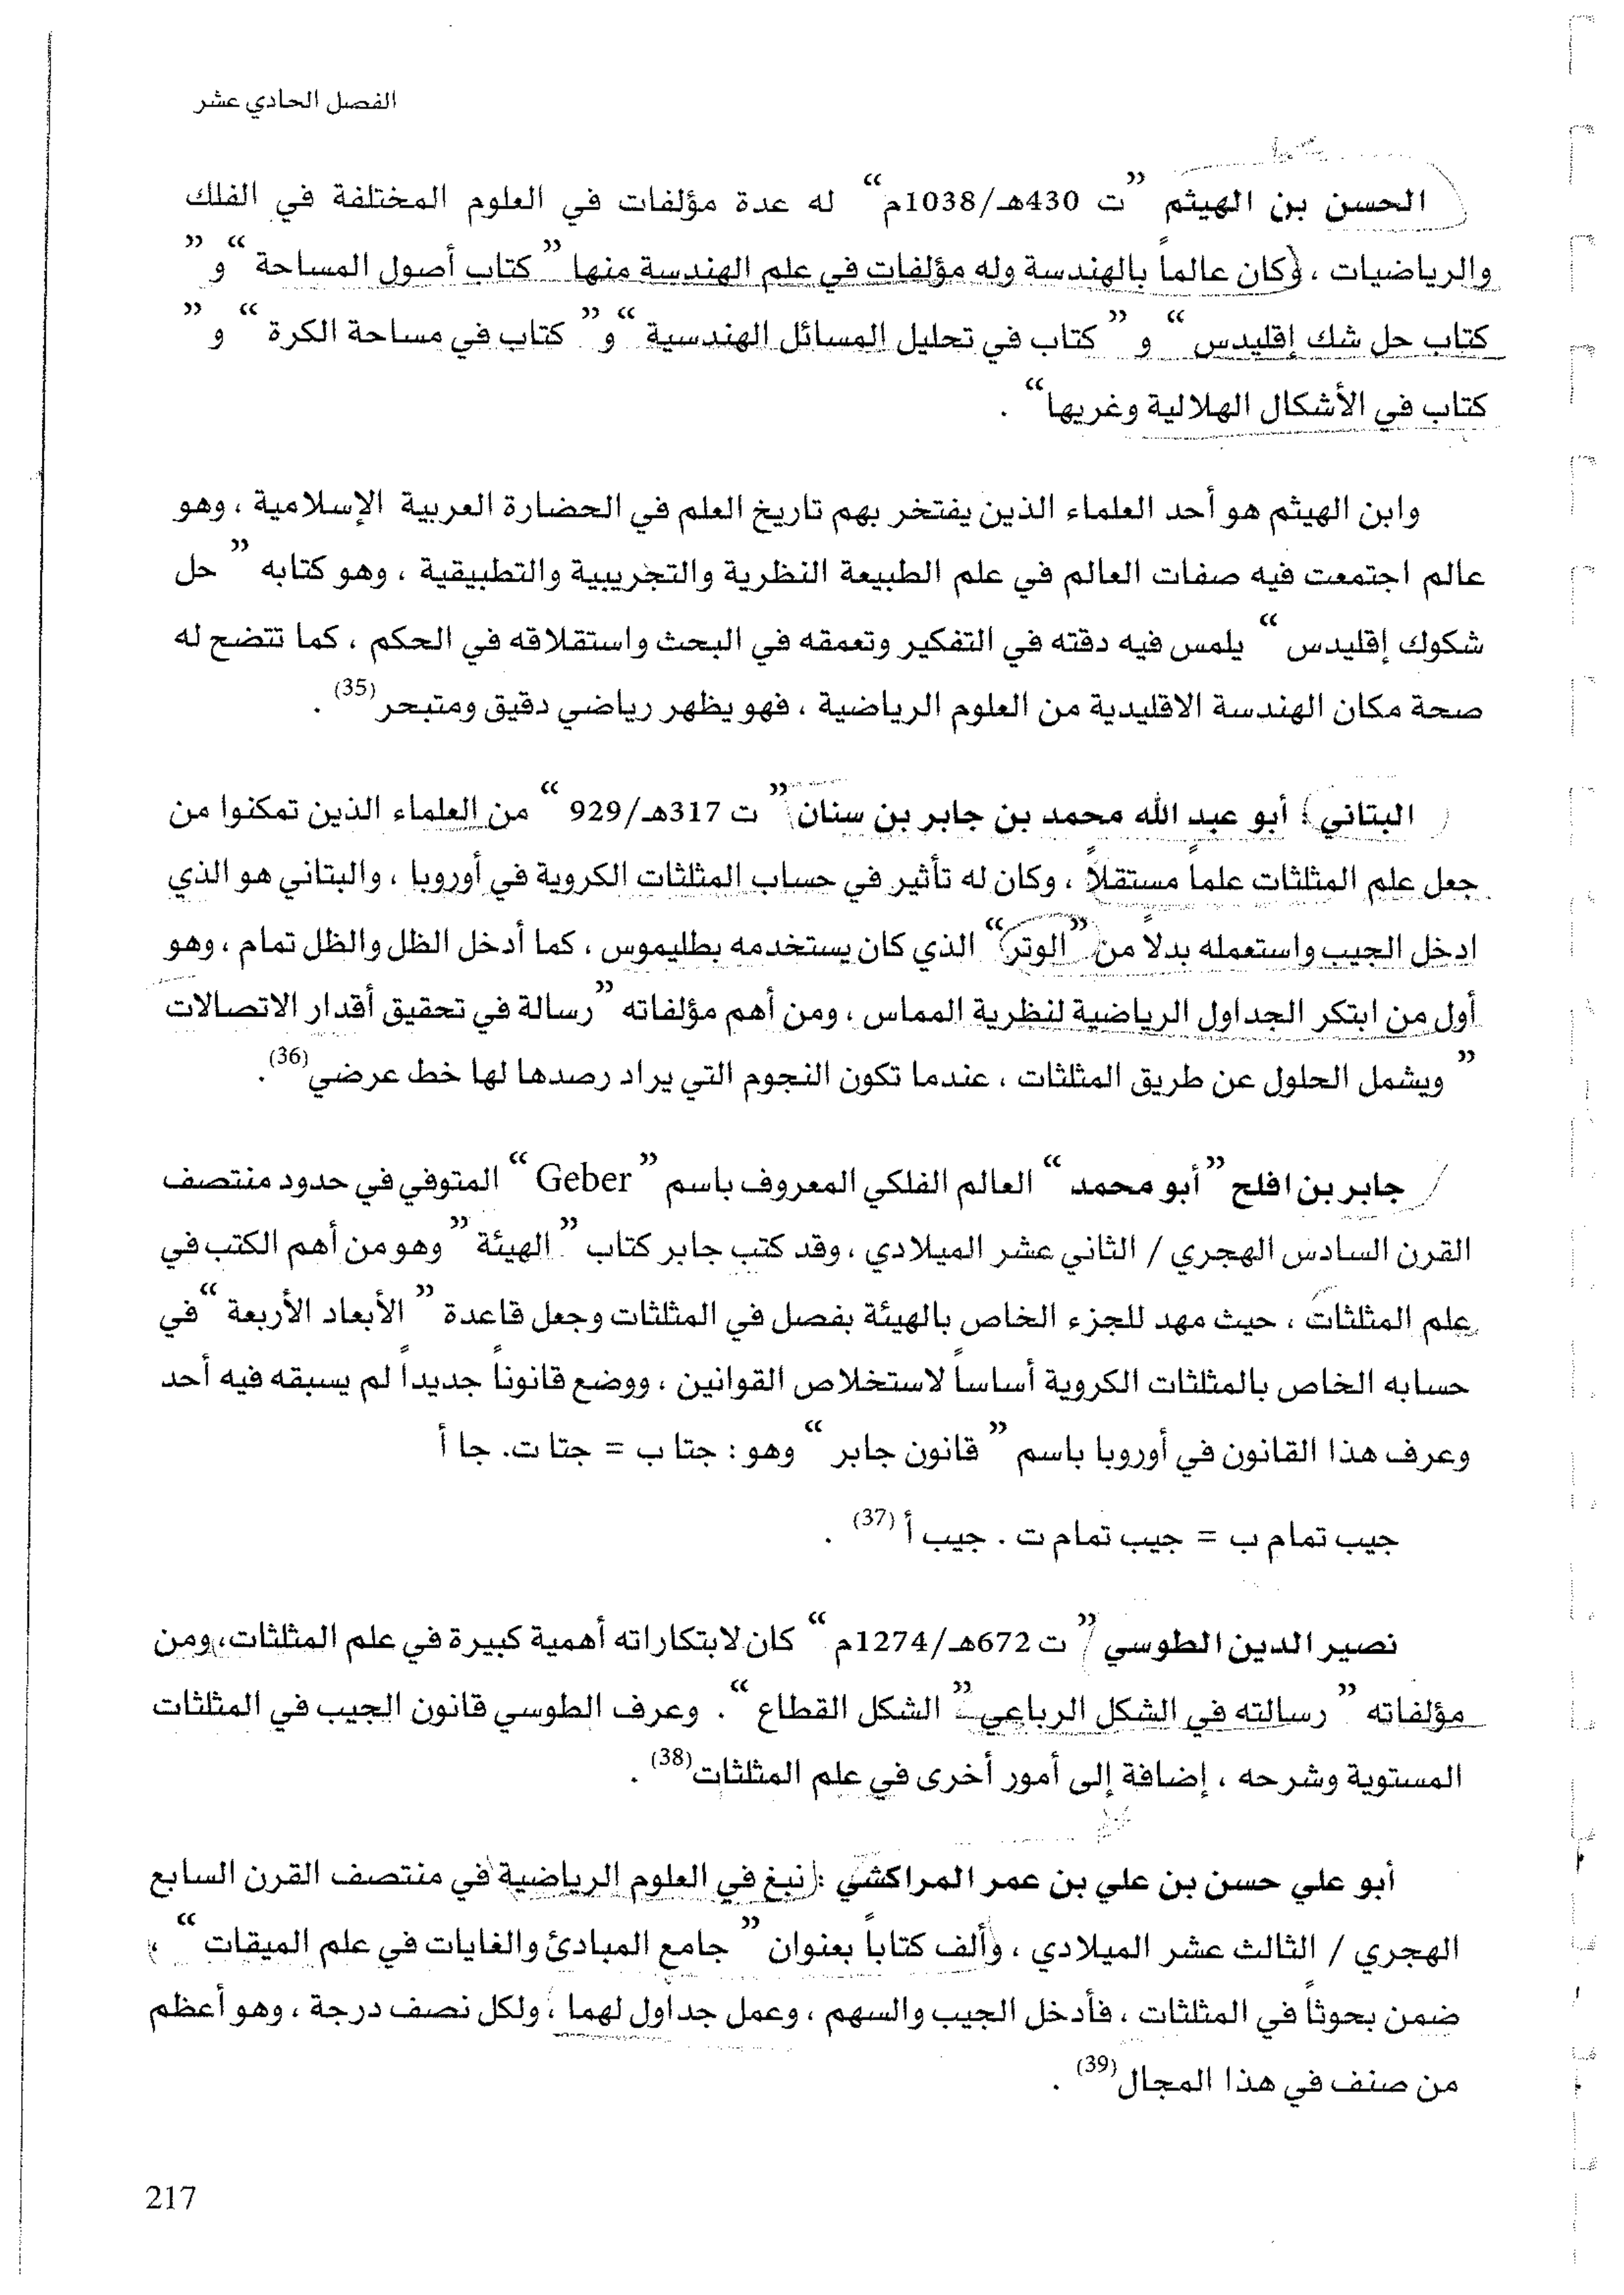 الفصل الحادي عشر
الحسن بن الهيثم ”ت 430هـ/1038م“ له عدة مؤلفات في العلوم المختلفة في الفلك
والرياضيات ، وكان عالماً بالهندسة وله مؤلفات في علم الهندسة منها ”كتاب أصول المساحة“ و ”
كتاب حل شك إقليدس“ و ”كتاب في تحليل المسائل الهندسية“ و ”كتاب في مساحة الكرة“ و ”
كتاب في الأشكال الهلالية وغريها“ .
وابن الهيثم هو أحد العلماء الذين يفتخر بهم تاريخ العلم في الحضارة العربية الإسلامية ، وهو
عالم اجتمعت فيه صفات العالم في علم الطبيعة النظرية والتجريبية والتطبيقية ، وهو كتابه ” حل
شكوك إقليدس “ يلمس فيه دقته في التفكير وتعمقه في البحث واستقلاقه في الحكم ، كما تتضح له
صحة مكان الهندسة الاقليدية من العلوم الرياضية ، فهو يظهر رياضي دقيق ومتبحر(35) .
البتاني : أبو عبد الله محمد بن جابر بن سنان ” ت 317هـ/929 “ من العلماء الذين تمكنوا من
جعل علم المثلثات علماً مستقلاً ، وكان له تأثير في حساب المثلثات الكروية في أوروبا ، والبتاني هو الذي
ادخل الجيب واستعمله بدلاً من ”الوتر“ الذي كان يستخدمه بطليموس ، كما أدخل الظل والظل تمام ، وهو
أول من ابتكر الجداول الرياضية لنظرية المماس ، ومن أهم مؤلفاته ”رسالة في تحقيق أقدار الاتصالات
” ويشمل الحلول عن طريق المثلثات ، عندما تكون النجوم التي يراد رصدها لها خط عرضي(36).
جابر بن افلح ”أبو محمد“ العالم الفلكي المعروف باسم ”Geber“ المتوفي في حدود منتصف
القرن السادس الهجري / الثاني عشر الميلادي ، وقد كتب جابر كتاب ”الهيئة ” وهو من أهم الكتب في
علم المثلثات ، حيث مهد للجزء الخاص بالهيئة بفصل في المثلثات وجعل قاعدة ” الأبعاد الأربعة “ في
حسابه الخاص بالمثلثات الكروية أساساً لاستخلاص القوانين ، ووضع قانوناً جديداً لم يسبقه فيه أحد
وعرف هذا القانون في أوروبا باسم ” قانون جابر “ وهو : جتا ب = جتا ت. جا أ
جيب تمام ب = جيب تمام ت . جيب أ (37) .
نصير الدين الطوسي ” ت 672هـ/1274م “ كان لابتكاراته أهمية كبيرة في علم المثلثات، ومن
مؤلفاته ” رسالته في الشكل الرباعي ” الشكل القطاع “. وعرف الطوسي قانون الجيب في المثلثات
المستوية وشرحه ، إضافة إلى أمور أخرى في علم المثلثات(38) .
أبو علي حسن بن علي بن عمر المراكشي : نبغ في العلوم الرياضية في منتصف القرن السابع
الهجري / الثالث عشر الميلادي ، وألف كتاباً بعنوان ” جامع المبادئ والغايات في علم الميقات “ ،
ضمن بحوثاً في المثلثات ، فأدخل الجيب والسهم ، وعمل جداول لهما ، ولكل نصف درجة ، وهو أعظم
من صنف في هذا المجال(39) .
217